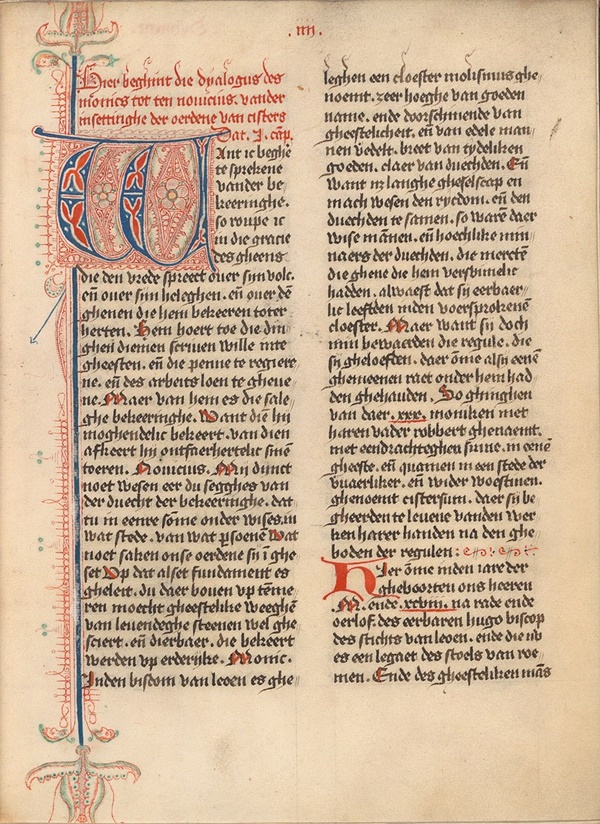 .iiij.
Hier beghint die dyalogus des
monics tot ten nouicius. vander
insettinghe der oerdene van cisters
Dat .I. cap.
Want ic beghe
te sprekene
vander be
keeringhe.
so roupe ic
in die gracie
des gheens
die den vrede spreect ouer sijn volc.
eñ ouer sijn heleghen. eñ ouer dē
ghenen die hem bekeeren toter
herten. Hem hoert toe die din
ghen diemen scriuen wille mte
gheesten. eñ die penne te regiere
ne. eñ des arbeits loen te gheue
ne. Maer van hem es die sale
ghe bekeeringhe. Want diē hi
moghendelic bekeert. van dien
afkeert hi ontfaerhertelic sinē
toeren. Nouicius. Mi dunct
noet wesen eer du segghes van
der duecht der bekeeringhe. dat
tu in eenre sōme onder wises. in
wat stede. van wat psoenē wat
noet saken onse oerdene sy ī ghe
set Op dat alset fundament es
gheleit. du daer bouen vp tēme
ren moecht gheestelike weeghē
van leuendeghe steenen wel ghe
sciert. eñ dierbaer. die bekeert
werden vp erderijke. Monic.
Inden bisdom van leoen es ghe
leghen een cloester molismus ghe
noemt. zeer hoeghe van goeden
name. ende doorschinende van
gheestelicheit. eñ van edele man
nen vedelt. breet van tydeliken
goeden. claer van duechden. Eñ
want in langhe gheselscap en
mach wesen den rycdom. eñ den
duechden te samen. so warē daer
wise mānen. eñ hoechlike min
naers der duechden. die mercte
die ghene die hem versuindlic
hadden. alwaest dat sy eerbaer
lic leefden inden voersprokenē
cloester. Maer want sy doch
min bewaerden die regule. die
sy gheloefden. daer ōme alsij eenē
ghemeenen raet onder hem had
den ghehauden. So ghinghen
van daer .xxx. moniken met
haren vader robbert ghenaemt.
met eendrachteghen sinne. in eenē
gheeste. eñ quamen in een stede der
vuaerliker. eñ wider woestinen.
ghenoemt cistersium. daer sy be
gheerden te leuene vanden wer
ken harer handen na den ghe
boden der regulen:
Hier ōme inden iare der
gheboorten ons heeren
.M. ende .xcviij. na rade ende
oerlof. des eerbaren hugo biscop
des stichts van leoen. ende die up
es een legaet des stoels van roe
men. Ende des gheesteliken mās